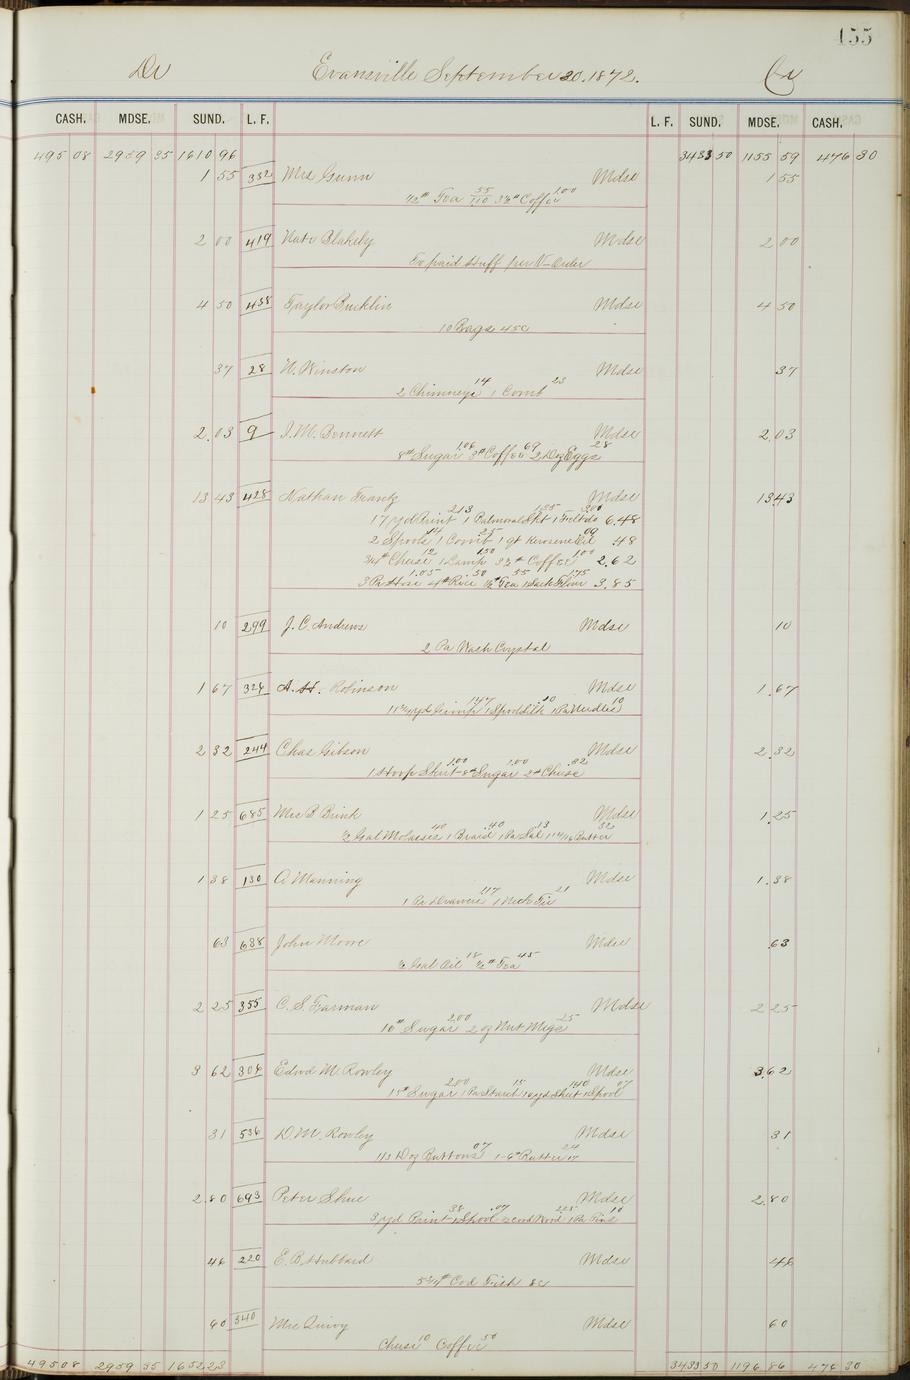 155
Dr Evansville September 20. 1872. Cr
CASH. MDSE. SUND. L. F. L. F. SUND. MDSE. CASH.
495 08 2959 35 1610 96 3433 50 1155 59 476 30
1 55 332 Mrs Gunn Mdse 1 55
½# Tea 55/110 3½# Coffee 1.00
2 00 419 Nate Blakely Mdse 2 00
To paid Huff per V-Order
4 50 438 Taylor Bucklin Mdse 4 50
10 Bags 45c
37 28 W. Winston Mdse 37
2 Chimneys 14 1 Comb 23
2.03 9 J. M. Bennett Mdse 2.03
8# Sugar 1.06 3# Coffee 69 2 Doz Eggs 28
13 43 428 Nathan Frantz Mdse 13.43
17 yd Print 213 1 Balmoral Skt 135 1 Felt do 300 6.48
2 Spools 14 1 Comb 25 1 qt Kerosene Oil 09 48
3/4# Cheese 12 1 Lamp 150 3½# Coffee 1.00 2.62
3 Pr Hose 1.05 4# Rice 50 ½# Tea 55 1 Sack Flour 175 3.85
10 299 J. C. Andrews Mdse 10
2 Pa Wash Crystal
1 67 324 A. H. Robinson Mdse 1.67
yd Gimp 147 1 Spool Silk 10 1 Pa Needles 10
2 32 244 Chas Gibson Mdse 2.32
1 Hoop Skirt 1.00 8# Sugar 1.00 2# Cheese .32
1 25 685 Mrs B Brink Mdse 1.25
½ Gal Molasses 40 1 Braid .40 1 Pa Sal 13 1 14/16 Butter 32
1 38 130 A Manning Mdse 1.38
1 Pr Drawers 117 1 Neck Tie 21
63 638 John Moore Mdse .63
½ Gal Oil 18 ½# Tea 45
2 25 355 C. S. Farman Mdse 2 25
16# Sugar 200 2 oz Nut Megs 25
3 62 306 Edwd M. Rowley Mdse 3.62
15# Sugar 200 1 Pa Starch 15 10 yd Shirt 140 1 Spool 07
31 536 D. M. Rowley Mdse 31
1/3 Doz Buttons 07 1-6# Butter 17 24
2.80 693 Peter Shue Mdse 2.80
3 yd Print 38 1 Spool .07 ½ cord Wood 225 1 Pa Pins 10
46 220 E. B. Hubbard Mdse 46
5 3/4# Cod Fish 8c
60 340 Mrs Quivy Mdse 60
Cheese 10 Coffee 50
495 08 2959 35 1652 23 3433 50 1196 86 476 30